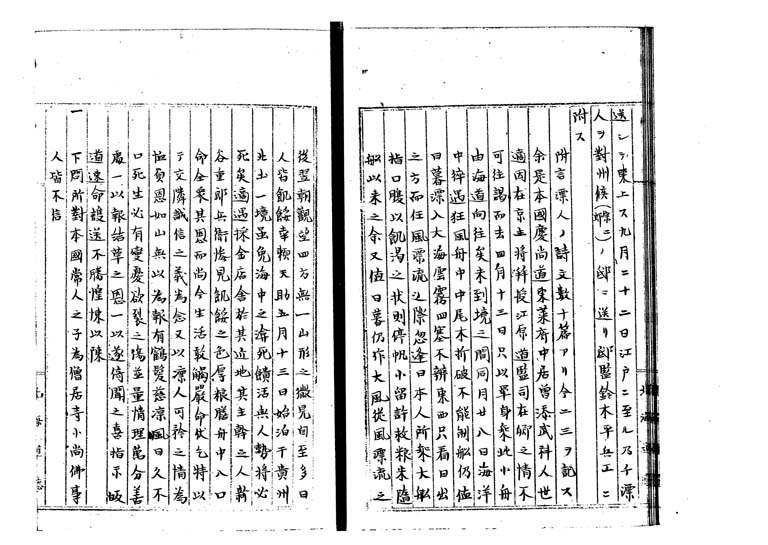 送シテ東上ス九月二十二日江戸ニ至ル乃チ漂
人ヲ對州候ノ邸ニ送リ邸監鈴木平兵工ニ
附ス
附言漂人ノ詩文數十篇アリ今二三ヲ記ス
余是本國慶尚道東萊府中居曽添武科人世
適因在京主將拜授江原道監司在鄉之情不
可往謁而去四月十三日只以單身乘此小舟
由海道向往矣未到境之間同月廿八日海洋
中猝遇狂風舟中中尾木折破不能制船仍値
日暮漂入大海雲霧四塞不辨東西只看日出
之方而任風漂流之際忽逢日本人所乘大船
指口腹以飢渴之狀則停帆小留許救粮米隨
船以来之余又值日暮仍作大風從風漂流之
後翌朝觀望四方無一山形之微見旬至多日
人皆飢餒幸賴天助五月十三日始泊于貴州
北土一境虽免海中之渰死饋活無人勢將必
死矣適遇採金店舍於其近地其主幹之人新
谷重郎兵衛憐見飢餒之色厚粮膳舟中八口
命全柰其恩而尚今生活敦觸嚴命伏乞特以
于文隣誠信之義為念又以漂人可矜之情為
恤負恩如山無以為報有鶴髮慈凉風日久不
口死生必有變憂欲裂之傷並量情理萬分善
處一以報結草之恩一以遂侍聞之喜指示
道速命超送不勝惶悚以陳
一下問所對本國常人之子為僧居寺小尚佛事
人皆不信